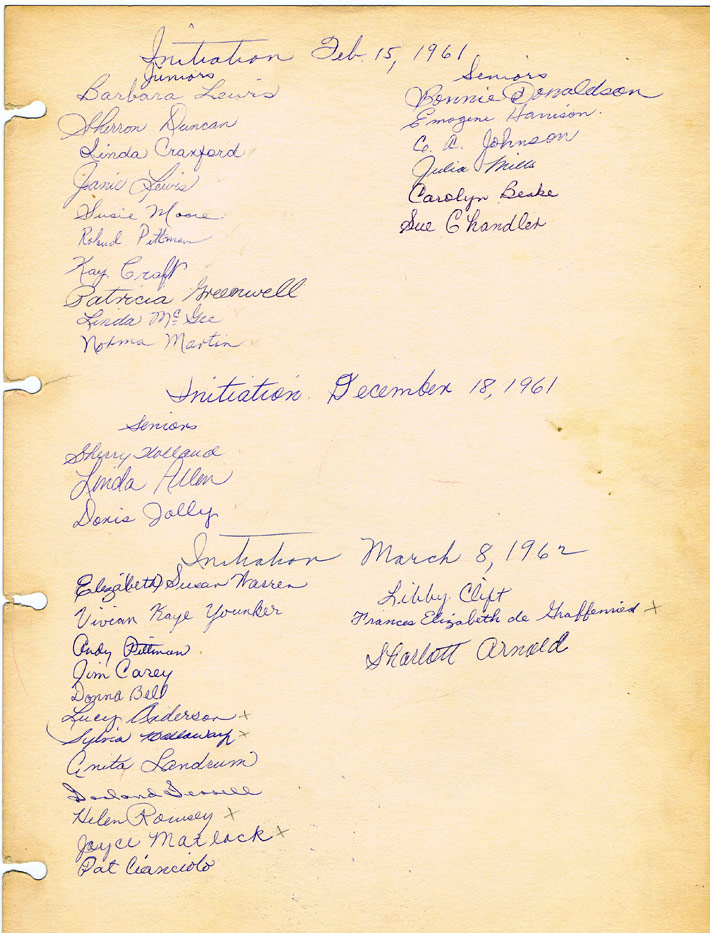 Initiation Feb. 15, 1961
Juniors
Barbara Lewis
Sherron Duncan
Linda Craxford
Janie Lewis
Susie Moore
Pittman
Kay Craft
Patricia Greenwell
Linda McGee
Norma Martin
Seniors
Bonnie Donaldson
Emogene Harrison.
C. A. Johnson
Julia Mills
Carolyn Beake
Sue Chandler
Initiation December 18, 1961
Seniors
Sherry Holland
Linda Allen
Doris Jolly
Initiation March 8, 1962
Elizabeth Susan Warren
Vivian Kaye Younker
Andy Pittman
Jim Carey
Donna Bell
Lucy Anderson x
Sylvia x
Anita Landrum
Helen Ramsey x
Joyce Matlock x
Pat Cianciolo
Libby Clift
Frances Elizabeth de Graffenried x
Sharlott Arnold